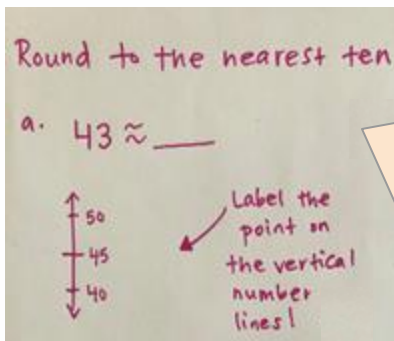 Round to the nearest ten
a. 43 ≈ ____
50
45
40
Label the
point on
the vertical
number
lines!